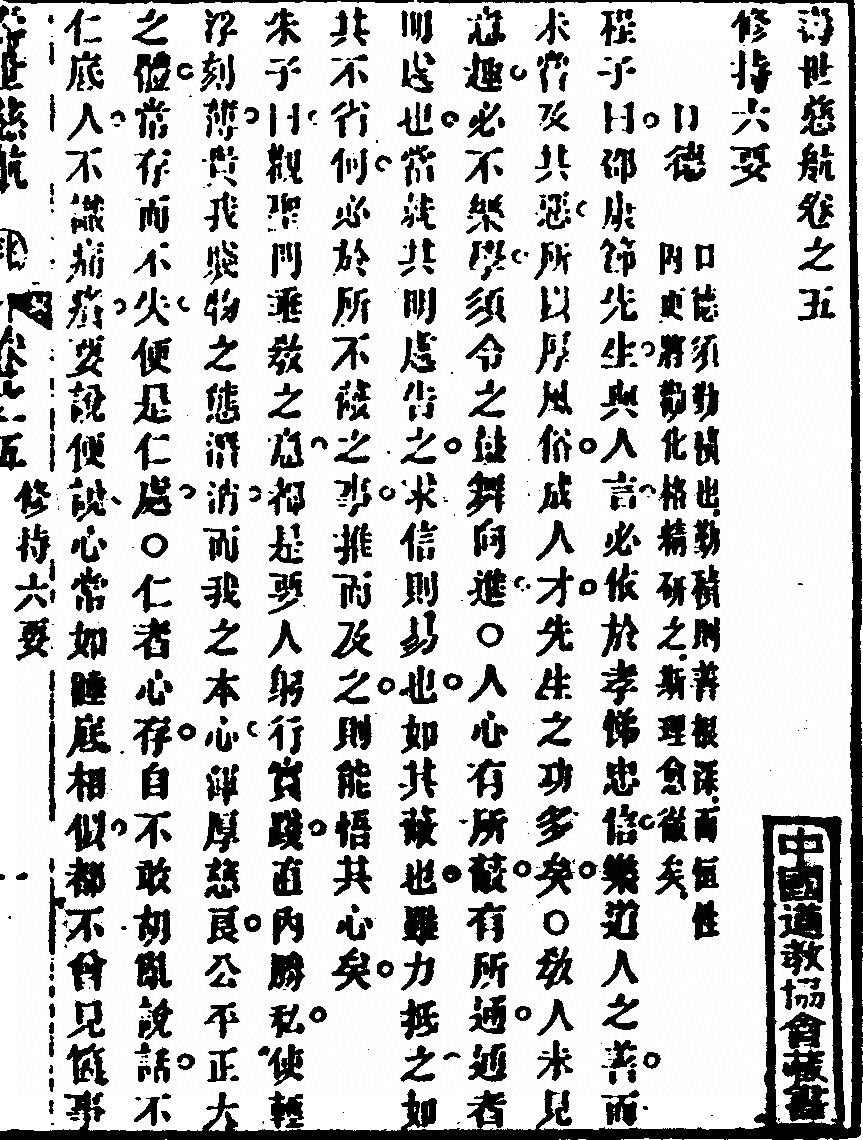 壽世慈航卷之五
修持六要
口德
口德須勤積也勤積則善根深而恒性
內更將勸化格精研之斯理愈徹矣
程子曰邵康節先生與人言必依於孝悌忠信樂道人之善而
未嘗及其惡所以厚風俗成人才先生之功多矣○敎人未見
意趣必不樂學須令之鼓舞向進○人心有所蔽有所通通者
明處也當就其明處告之求信則易也如其蔽也雖力抵之如
其不省何必於所不蔽之事推而及之則能悟其心矣
朱子曰觀聖門垂敎之意都是要人躬行實踐直內勝私使輕
浮刻薄貴我賤物之態潛消而我之本心渾厚慈良公平正大
之體常存而不失便是仁處○仁者心存自不敢胡亂說話不
仁底人不識痛癢要說便說心常如睡底相似都不曾見箇事
壽世慈航 卷之五 修持六要
中國道教協會藏書